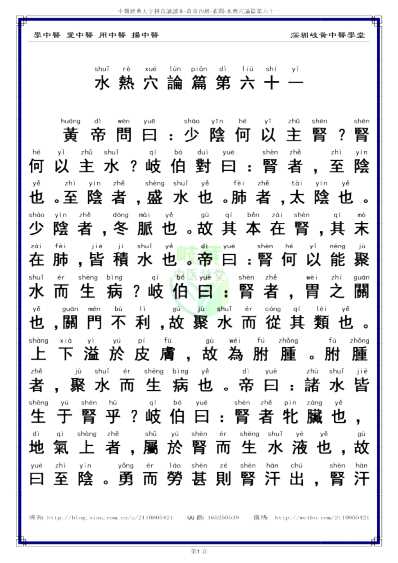 學中醫 愛中醫 用中醫 揚中醫
shuǐ rè xué lùn piān dì liù shí yī
水熱穴論篇第六十一
huáng dì wèn yuē shào yīn hé yǐ zhǔ shèn shèn
黃帝問曰：少陰何以主腎？腎
hé yǐ zhǔ shuǐ qí bó duì yuē shèn zhě zhì yīn
何以主水？岐伯對曰：腎者，至陰
yě zhì yīn zhě shèng shuǐ yě fèi zhě tài yīn yě
也。至陰者，盛水也。肺者，太陰也。
shào yīn zhě dōng mài yě gù qí běn zài shèn qí mò
少陰者，冬脈也。故其本在腎，其末
zài fèi jiē jī shuǐ yě dì yuē shèn hé yǐ néng jù
在肺，皆積水也。帝曰：腎何以能聚
shuǐ ér shēng bìng qí bó yuē shèn zhě wèi zhī guān
水而生病？岐伯曰：腎者，胃之關
yě guān mén bú lì gù jù shuǐ ér cóng qí lèi yě
也，關門不利，故聚水而從其類也。
shàng xià yì yú pí fū gù wéi fū zhǒng fū zhǒng
上下溢於皮膚，故為胕腫。胕腫
zhě jù shuǐ ér shēng bìng yě dì yuē zhū shuǐ jiē
者，聚水而生病也。帝曰：諸水皆
shēng yú shèn hū qí bó yuē shèn zhě pìn zàng yě
生于腎乎？岐伯曰：腎者牝臟也，
dì qì shàng zhě shǔ yú shèn ér shēng shuǐ yè yě gù
地氣上者，屬於腎而生水液也，故
yuē zhì yīn yǒng ér láo shèn zé shèn hàn chū shèn hàn
曰至陰。勇而勞甚則腎汗出，腎汗
第1页